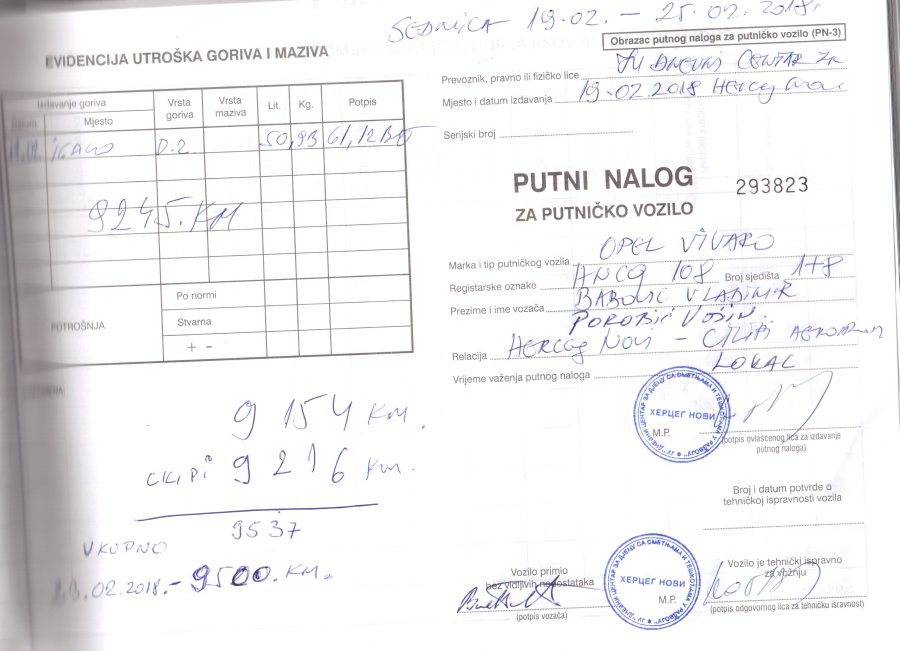 SEDNICA 19.02. – 25.02. 2018.
EVIDENCIJA UTROŠKA GORIVA I MAZIVA
Izdavanje goriva
Mjesto
Vrsta goriva
Vrsta maziva
Lit.
Kg.
Potpis
IGALO D.2 50,93 61,12
9245.KM
POTROŠNJA
Po normi
Stvarna
+ -
9 154 KM.
9 216 KM.
9537
UKUPNO
02.2018.- 9500.KM.
Obrazac putnog naloga za putničko vozilo (PN-3)
Prevoznik, pravno ili fizičko lice JU DNEVNI CENTAR ZA
Mjesto i datum izdavanja 19.02.2018 Herceg
Serijski broj
PUTNI NALOG 293823
ZA PUTNIČKO VOZILO
Marka i tip putničkog vozila OPEL VIVARO
Registarske oznake HNCG 108 Broj sjedišta 1+8
Prezime i ime vozača VLADIMIR
POROBIĆ
Relacija HERCEG NOVI – ĆILIPI AERODROM
LOKAL
Vrijeme važenja putnog naloga
ХЕРЦЕГ НОВИ
М.Р.
(potpis ovlašćenog lica za izdavanje
putnog naloga)
Broj i datum potvrde o
tehničkoj ispravnosti vozila
Vozilo primio
bez vidljivih nedostataka
(potpis vozača)
ХЕРЦЕГ НОВИ
М.Р.
Vozilo je tehnički ispravno
za vožnju
(potpis odgovornog lica za tehničku isravnost)